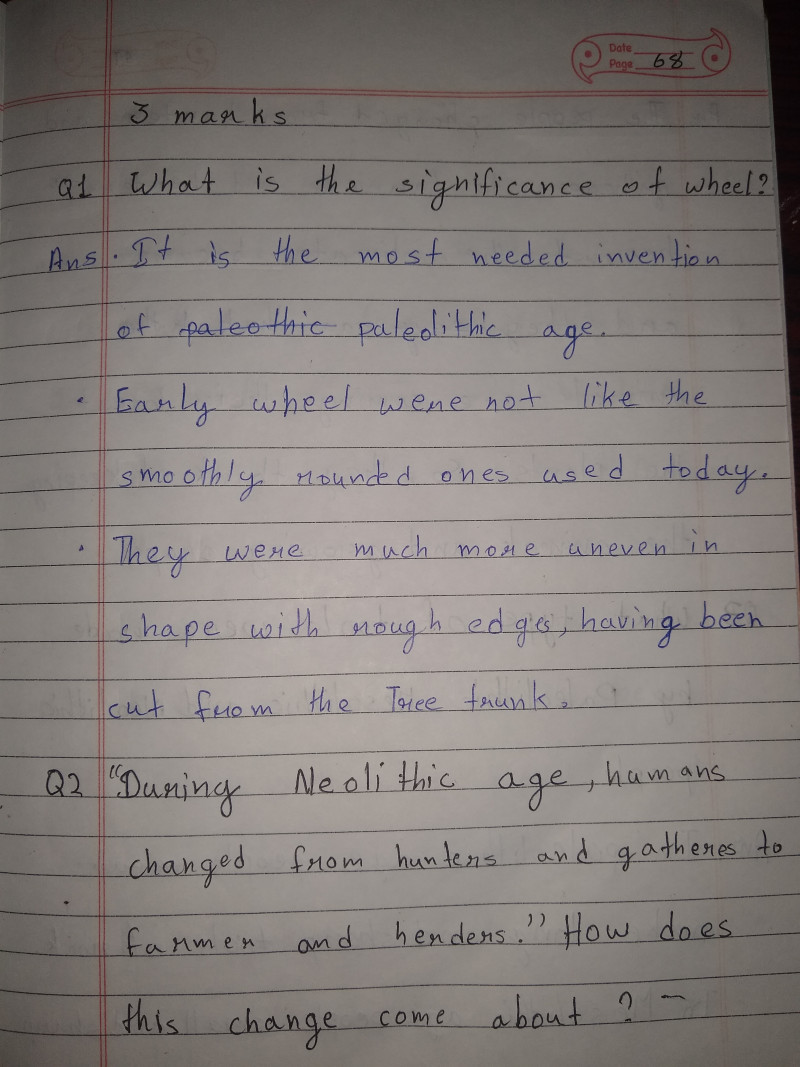 Date
Page 68
3 marks
Q1 What is the significance of wheel?
Ans . It is the most needed invention
of paleothic paleolithic age.
• Early wheel were not like the
smoothly rounded ones used today.
• They were much more uneven in
shape with rough edges, having been
cut from the Tree trunk.
Q2 "During Neolithic age, humans
changed from hunters and gatheres to
farmer and herders." How does
this change come about ? –